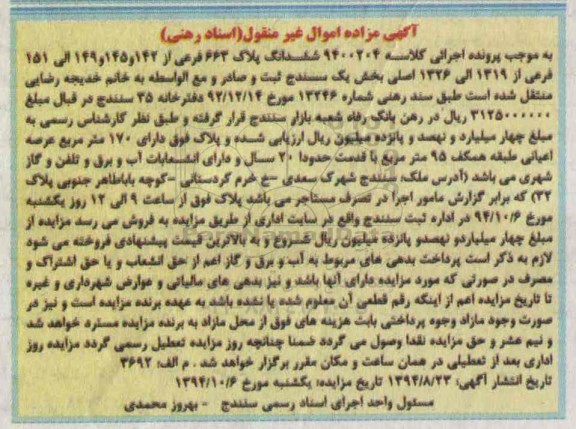 آگهی مزاده اموال غیر منقول(اسناد رهنی)
به موجب پرونده اجرائی کلاسه ۹۴۰۰۲۰۴ ششدانگ پلاک ۶۶۳ فرعی از ۱۴۲و۱۴۵و۱۴۹ الی ۱۵۱
فرعی از ۱۳۱۹ الی ۱۳۲۶ اصلی بخش یک سنندج ثبت و صادر و مع الواسطه به خانم خدیجه رضایی
منتقل شده است طبق سند رهنی شماره ۱۳۲۴۶ مورخ ۹۲/۱۲/۱۴ دفترخانه ۳۵ سنندج در قبال مبلغ
۳۱۲۵۰۰۰۰۰۰ ریال در رهن بانک رفاه شعبه بازار سنندج قرار گرفته و طبق نظر کارشناس رسمی به
مبلغ چهار میلیارد و نهصد و پانزده میلیون ریال ارزیابی شده و پلاک فوق دارای ۱۷۰ متر مربع عرصه
اعیانی طبقه همکف ۹۵ متر مربع با قدمت حدودا ۲۰ سال و دارای انشعابات آب و برق و تلفن و گاز
شهری می باشد (آدرس ملک: سنندج شهرک سعدی –خ خرم کردستانی –کوچه باباطاهر جنوبی پلاک
۳۲) که برابر گزارش مامور اجرا در تصرف مستاجر می باشد پلاک فوق از ساعت ۹ الی ۱۲ روز یکشنبه
مورخ ۹۴/۱۰/۶ در اداره ثبت سنندج واقع در سایت اداری از طریق مزایده به فروش می رسد مزایده از
مبلغ چهار میلیاردو نهصدو پانزده میلیون ریال شروع و به بالاترین قیمت پیشنهادی فروخته می شود
لازم به ذکر است پرداخت بدهی های مربوط به آب و برق و گاز اعم از حق انشعاب و یا حق اشتراک و
مصرف در صورتی که مورد مزایده دارای آنها باشد و نیز بدهی های مالیاتی و عوارض شهرداری و غیره
تا تاریخ مزایده اعم از اینکه رقم قطعی آن معلوم شده یا نشده باشد به عهده برنده مزایده است و نیز در
صورت وجود مازاد وجوه پرداختی بابت هزینه های فوق از محل مازاد به برنده مزایده مسترد خواهد شد
و نیم عشر و حق مزایده نقدا وصول می گردد ضمنا چنانچه روز مزایده تعطیل رسمی گردد مزایده روز
اداری بعد از تعطیلی در همان ساعت و مکان مقرر برگزار خواهد شد . م الف: ۳۶۹۲
تاریخ انتشار آگهی: ۱۳۹۴/۸/۲۳ تاریخ مزایده: یکشنبه مورخ ۱۳۹۴/۱۰/۶
مسئول واحد اجرای اسناد رسمی سنندج - بهروز محمدی